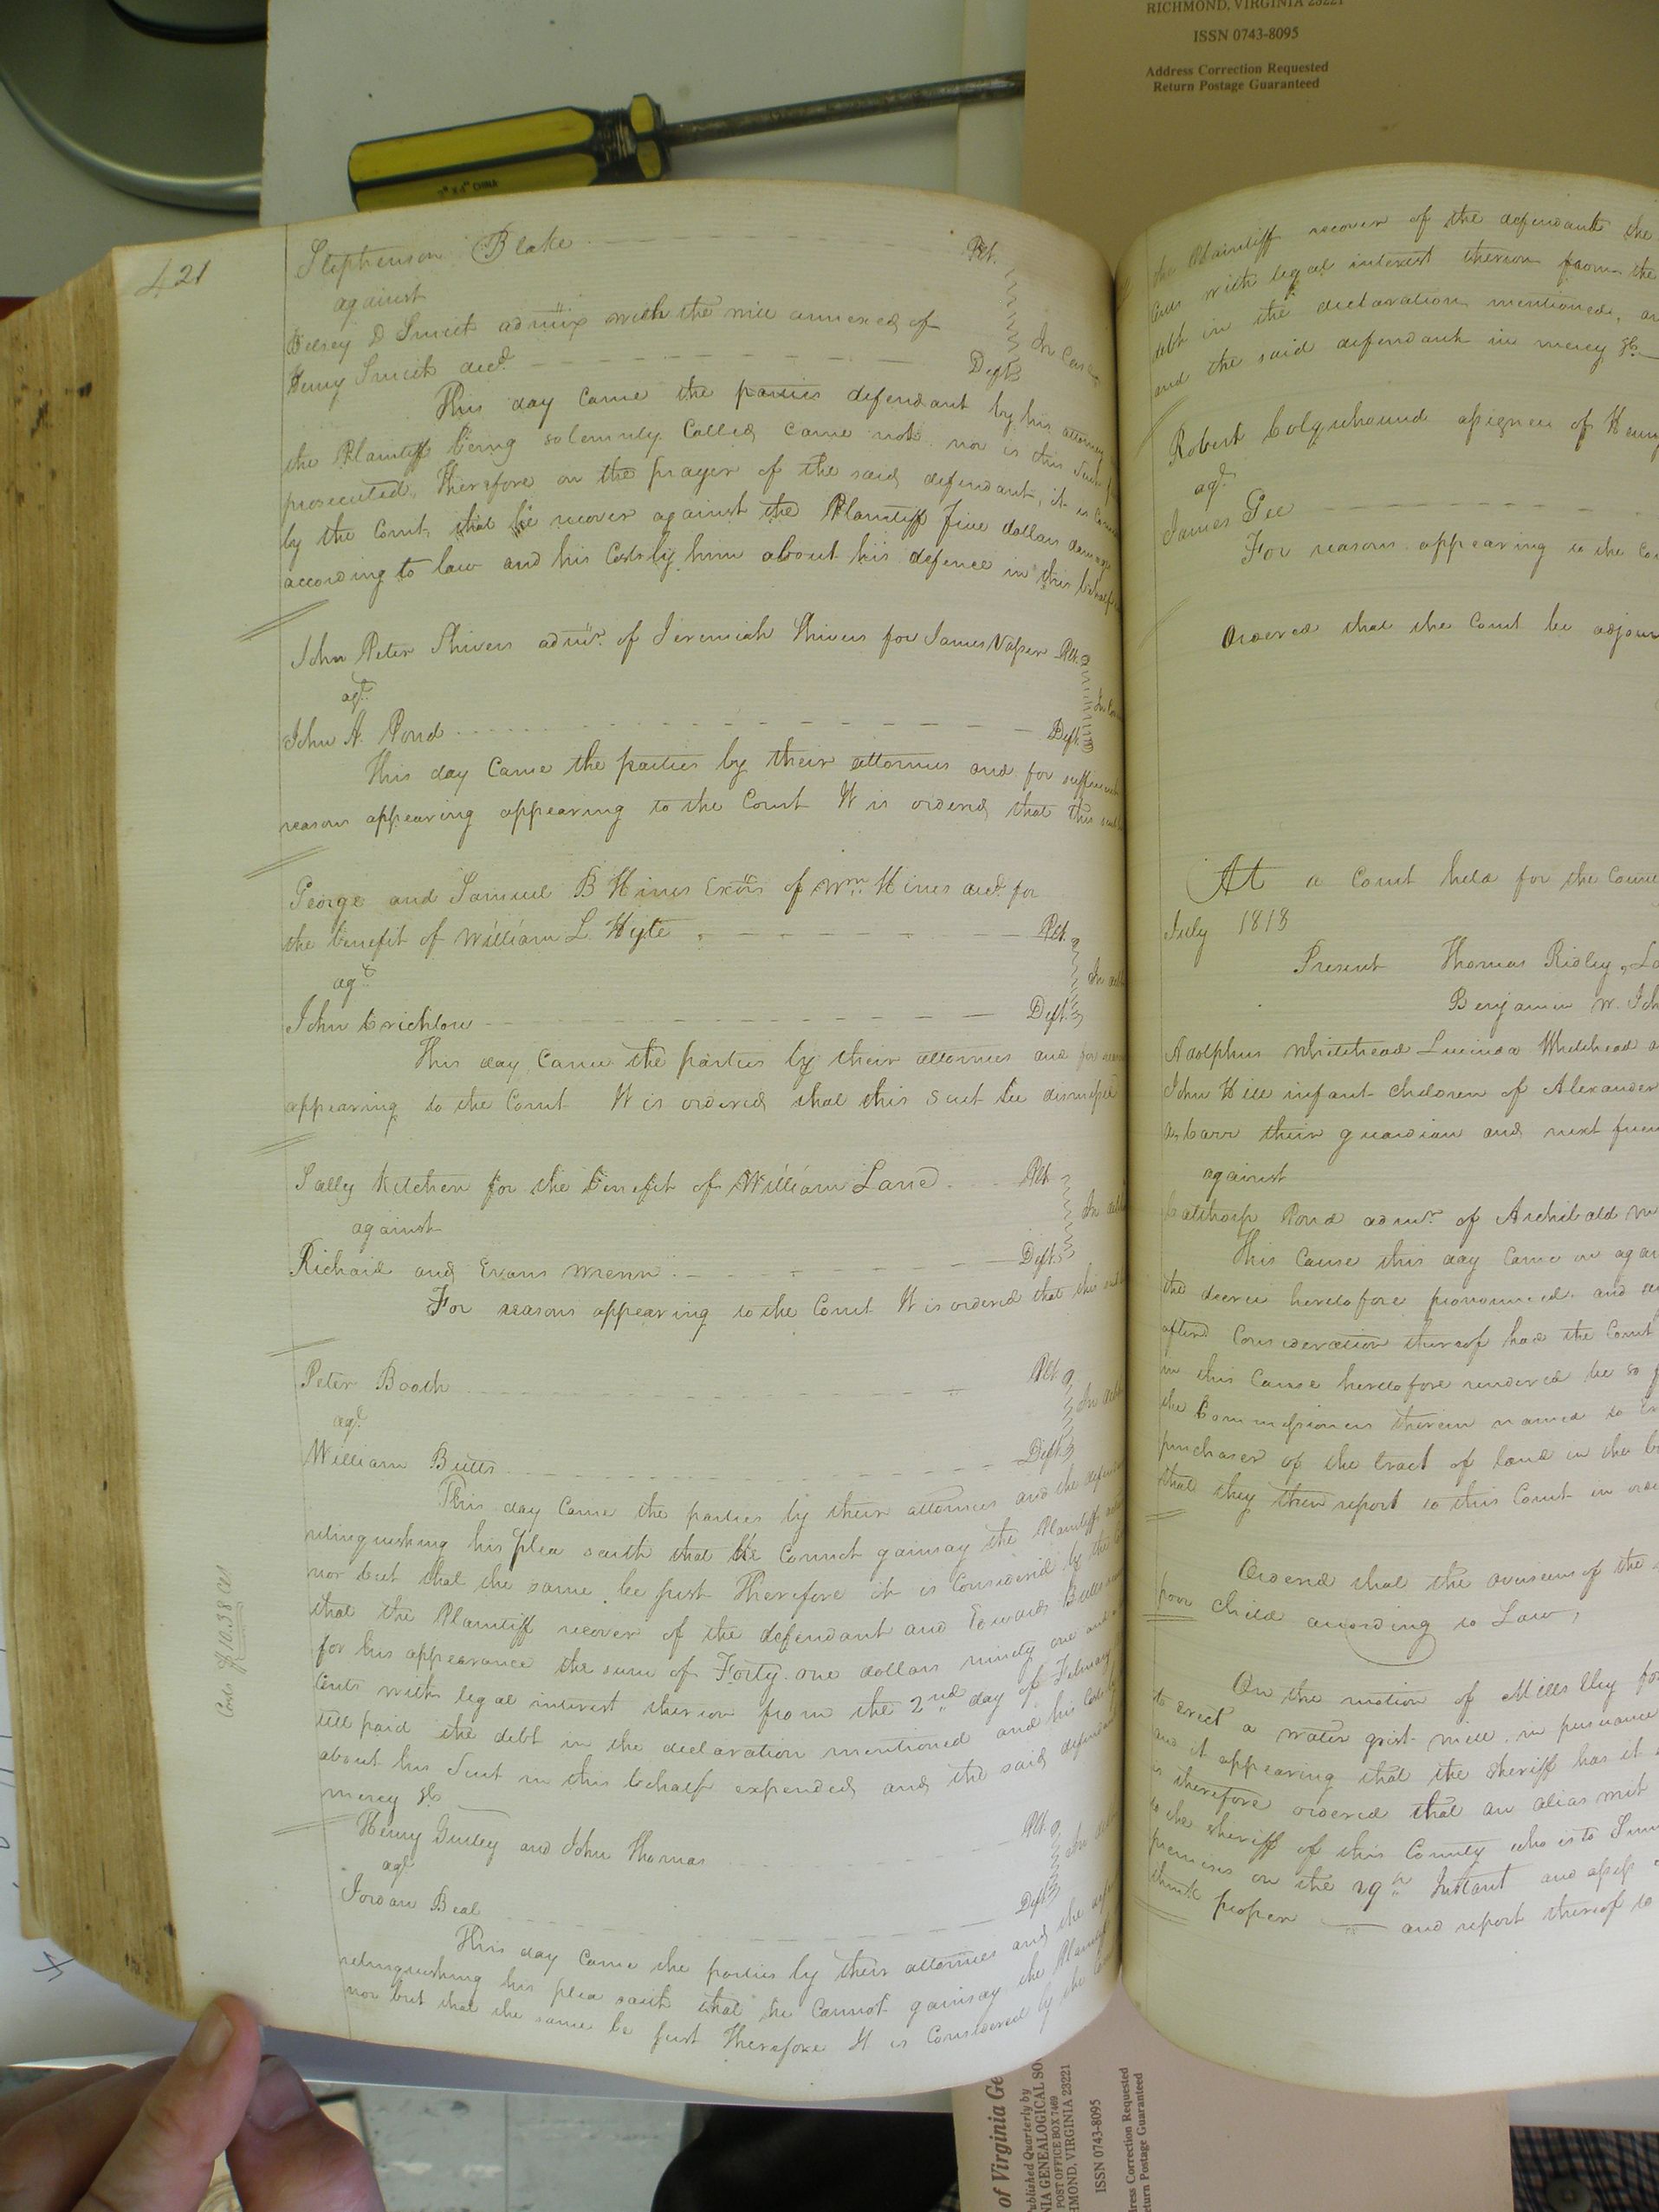 RICHMOND, VIRGINIA 23221
ISSN 0743-8095
Address Correction Requested
Return Postage Guaranteed
421
Stephenson Blake Plt.
against
Betsey D Smith admix with the will annexed of
Henry Smith decd. Deft
In Case
This day Came the parties defendant by his attorney
the Plaintiff being solemnly Called Came not nor is this Suit
prosecuted, Therefore on the prayer of the said defendant, it is
by the Court, that he recover against the Plaintiff five dollars damage
according to law and his Costs by him about his defence in this behalf
John Peter Shivers admr. of Jeremiah Shivers for James Vaser Plt.
agt.
John A. Pond Deft.
This day Came the parties by their attornies and for sufficient
reasons appearing appearing to the Court It is ordered that this
George and Samuel B Hines Exors of Wm. Hines decd. for
the benefit of William L. Hyte Plt.
agt.
John Crichlow Deft.
This day Came the parties by their attornies and for
appearing to the Court It is ordered that this Suit be dismissed
Sally Kitchen for the benefit of William Land Plt
against
Richard and Evans Wrenn Deft.
For reasons appearing to the Court It is ordered that this
Peter Booth Plt
agt.
William Butts Deft
This day Came the parties by their attornies and the
relinquishing his plea saith that he Cannot gainsay the Plaintiffs
nor but that the same be just Therefore it is Considered by the
that the Plaintiff recover of the defendant and Edwards Butts
for his appearance the sum of Forty one dollars ninety one and
Cents with legal interest thereon from the 2nd day of February
till paid the debt in the declaration mentioned and his Costs by
about his Suit in this behalf expended and the said
mercy &c
Costs $10.38 Cts
Henry Gurley and John Thomas Plt
agt
Jordan Beal Deft
This day Came the parties by their attornies and the
relinquishing his plea saith that he Cannot gainsay the
nor but that the same be just Therefore It is Considered by the
the Plaintiff recover of the defendant the
with legal interest thereon from the
debt in the declaration mentioned,
and the said defendant in mercy &c
Robert Colquhound assignee of Henry
agt.
James Gee
For reasons appearing to the
Ordered that the Court be
At a Court held for the
July 1818
Present Thomas Ridley,
Benjamin W.
Adolphus Whitehead Lucinda Whitehead
John Hill infant Children of Alexander
their guardian and next
against
Calthorp Pond admr. of Archibald
This Cause this day Came on
the decree heretofore pronounced and
after Consideration thereof had the Court
in this Cause heretofore rendered be so
the Commissioners therein named to
purchaser of the tract of land in the
that they then report to this Court in
Ordered that the overseers of the
poor child according to Law,
On the motion of Mills Eley for
to erect a water grist mill, in pursuance
and it appearing that the Sheriff has it
is therefore ordered that an alias writ
to the Sheriff of this County who is to
premises on the 29th Instant and assess
think proper and report thereof to
of Virginia Ge
Published Quarterly by
NIA GENEALOGICAL SO
POST OFFICE BOX 7469
HMOND, VIRGINIA 23221
ISSN 0743-8095
dress Correction Requested
eturn Postage Guaranteed